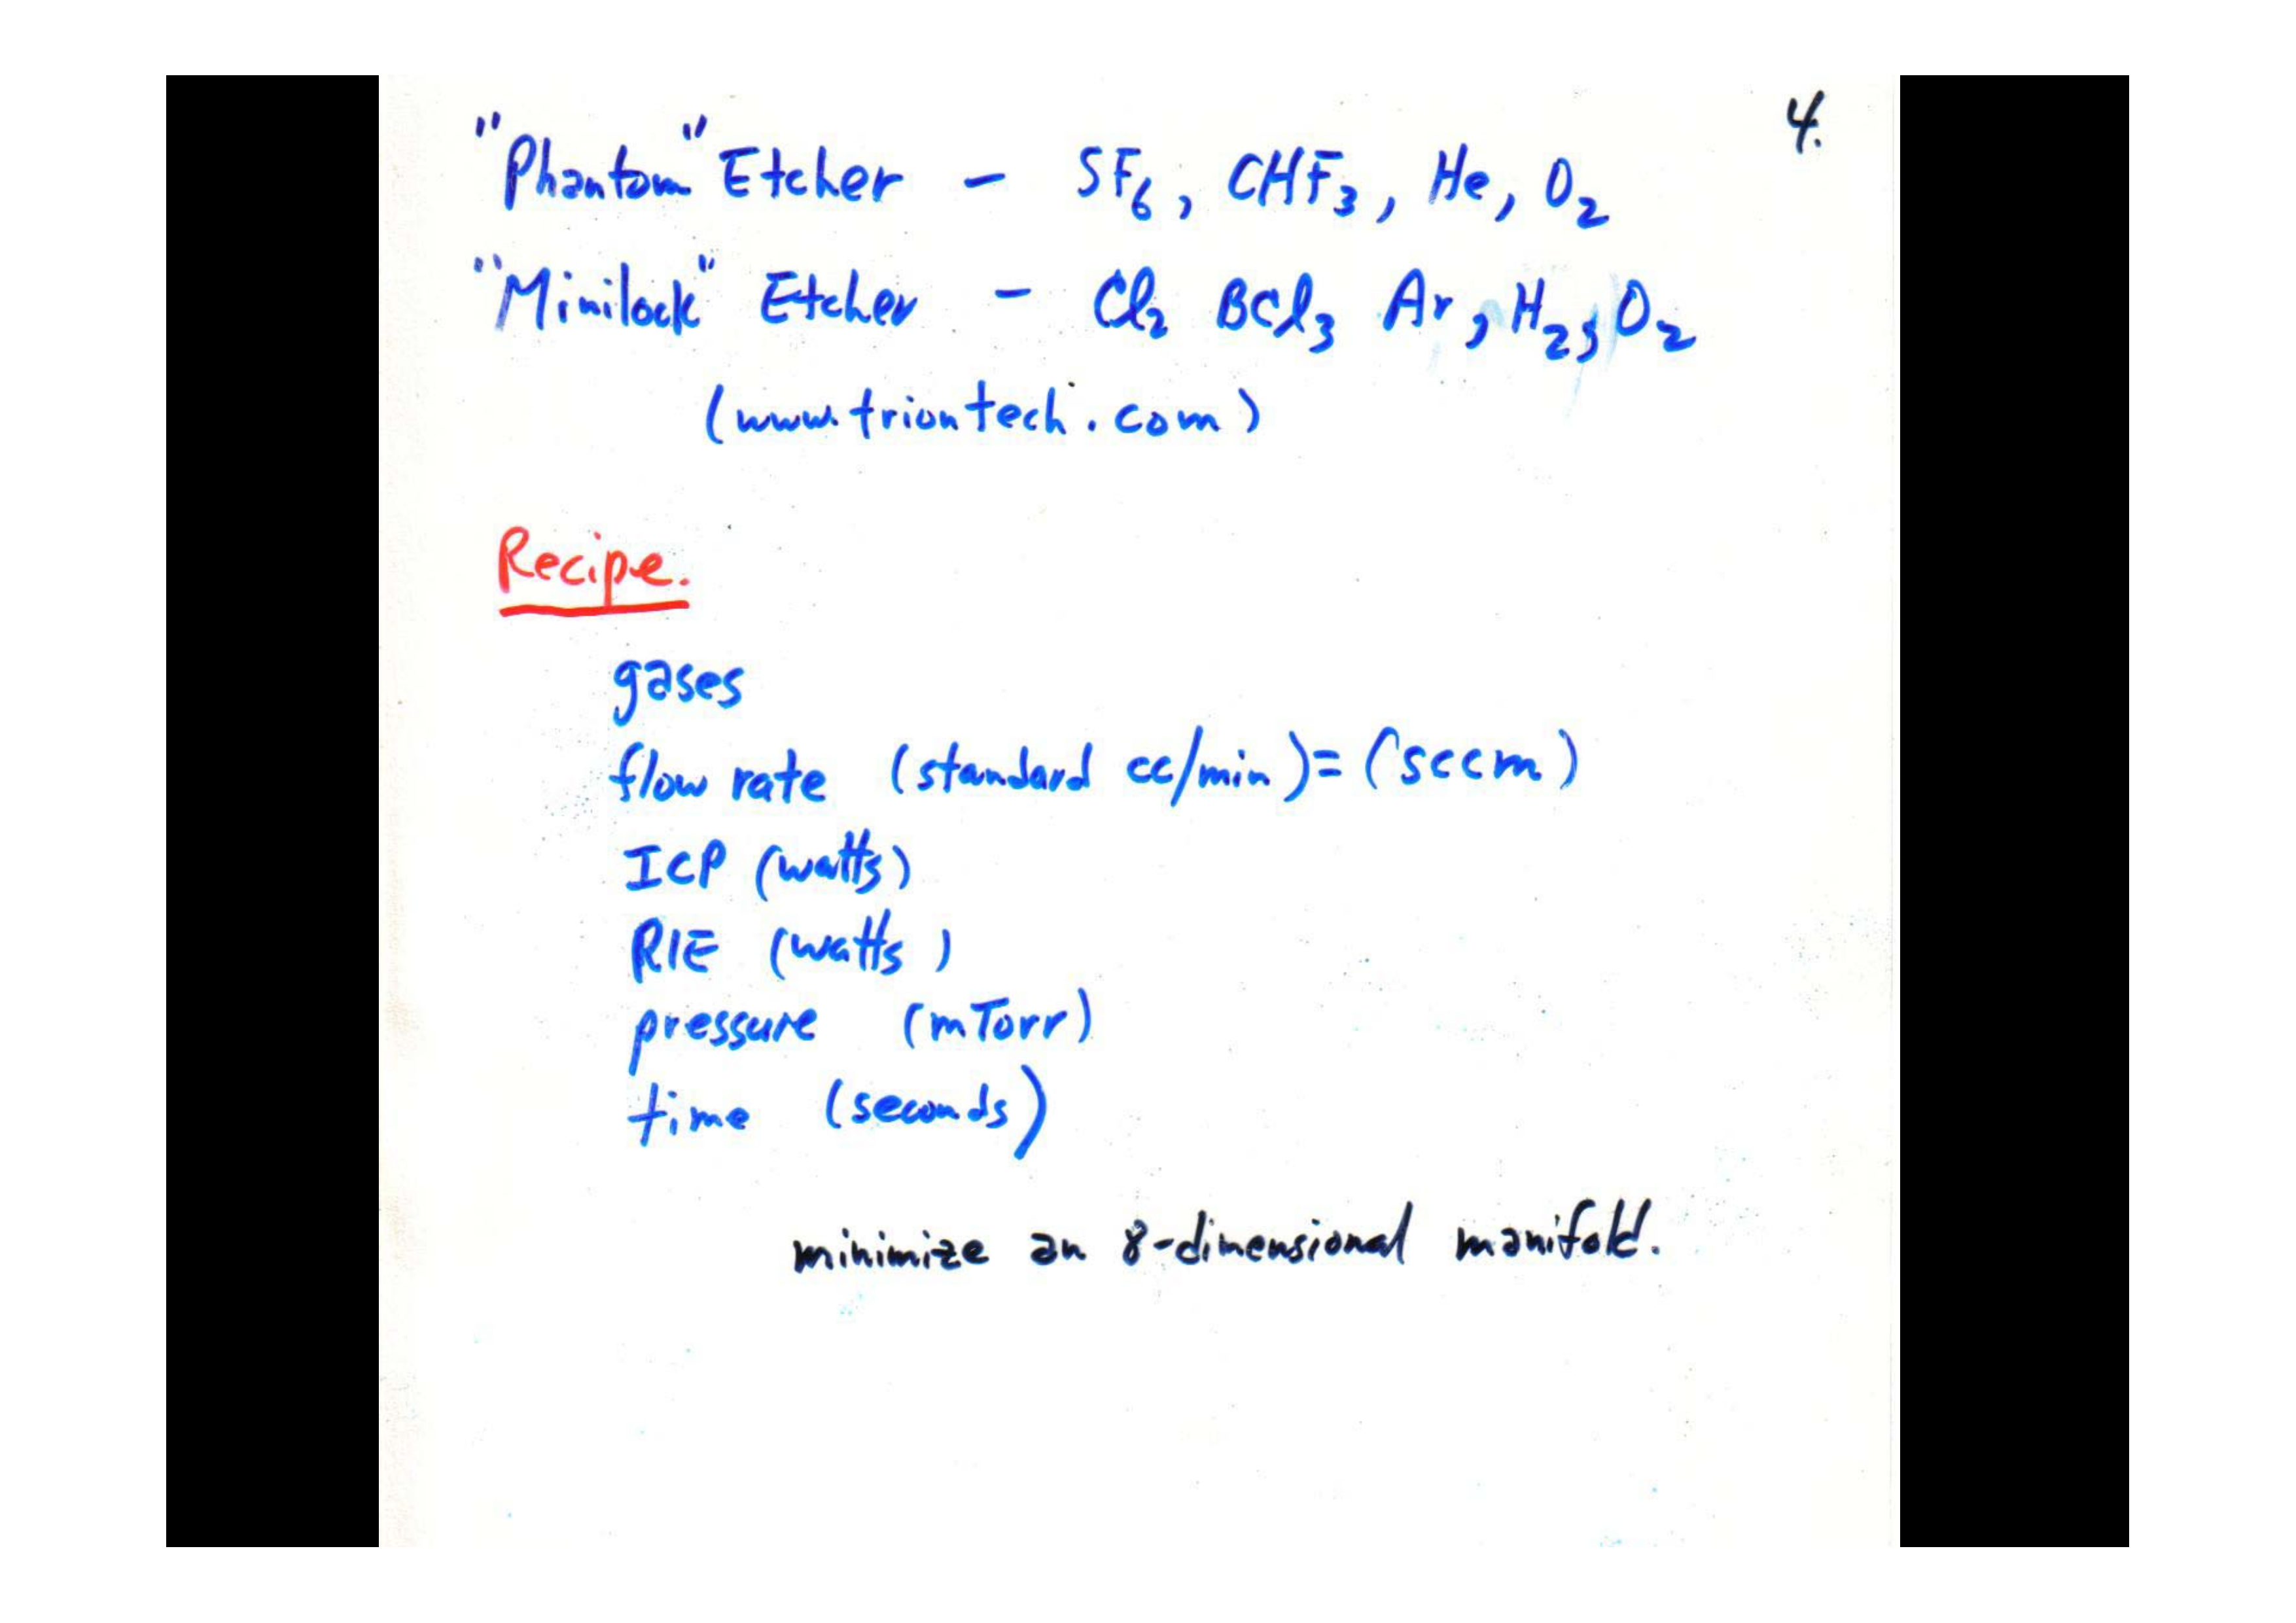 4.
"Phantom" Etcher - SF₆, CHF₃, He, O₂
"Minilock" Etcher - Cl₂ BCl₃ Ar, H₂, O₂
(www.triontech.com)
Recipe.
gases
flow rate (standard cc/min) = (sccm)
ICP (watts)
RIE (watts)
pressure (mTorr)
time (seconds)
minimize an 8-dimensional manifold.